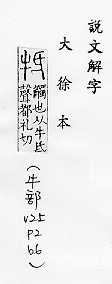 說文解字
大徐本
牴
觸也从牛氐
聲都礼切
(牛部
V25
P2
b6)